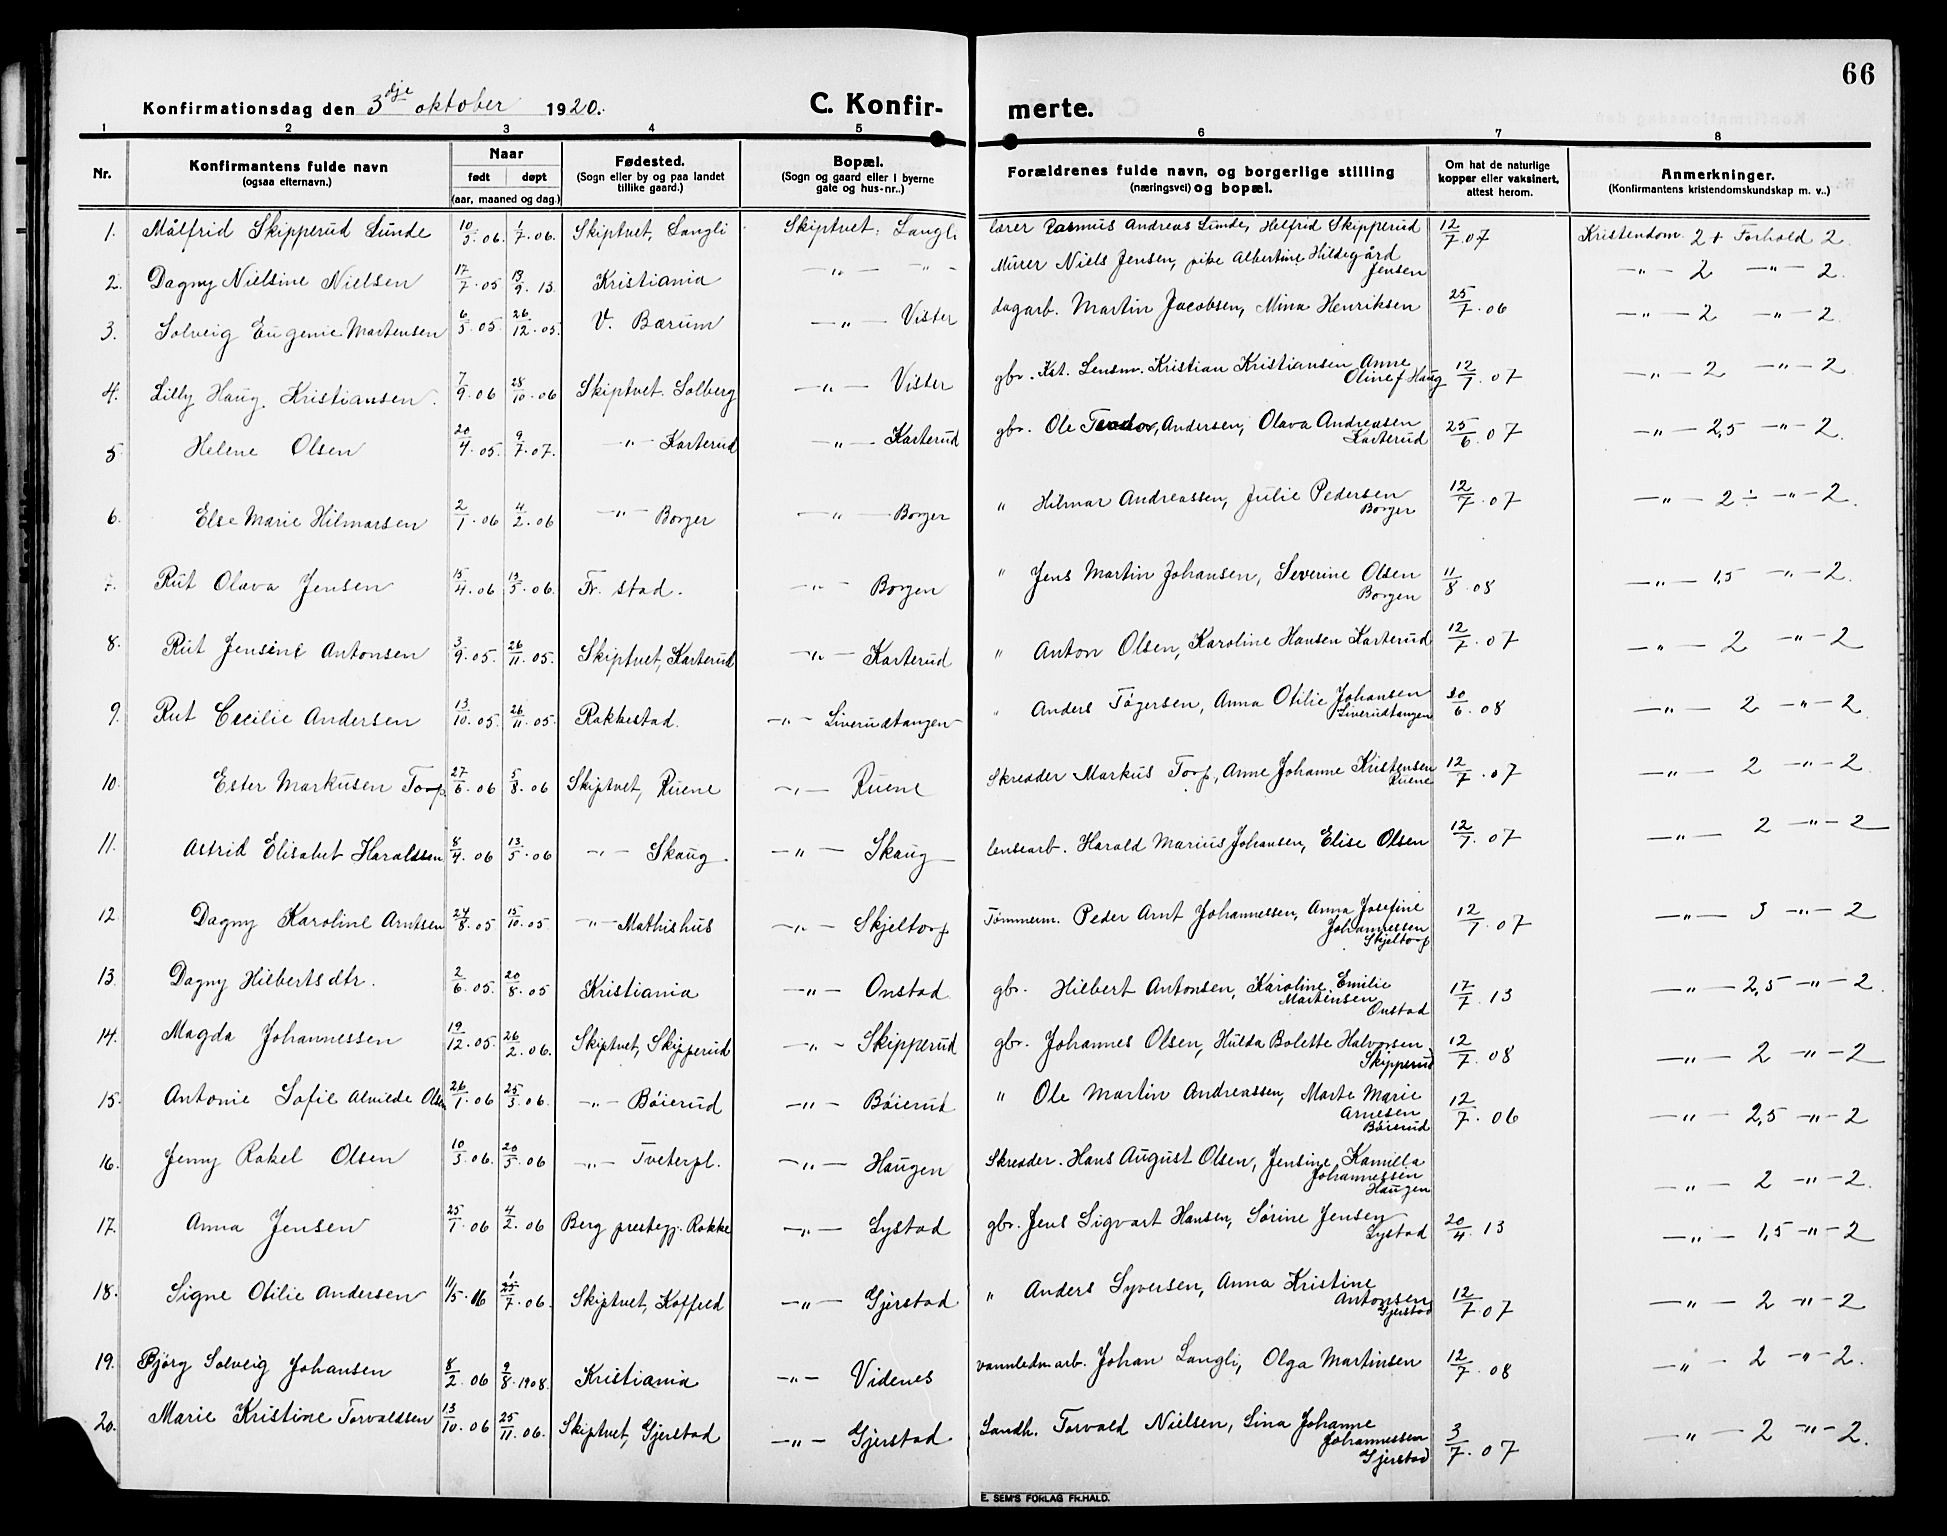 66
Konfirmationsdag den 3dje oktober 1920. C. Konfir- merte.
1 2 3 4 5 6 7 8
Nr. Konfirmantens fulde navn (ogsaa efternavn.) Naar født døpt (aar, maaned og dag.) Fødested. (Sogn eller by og paa landet tillike gaard.) Bopæl. (Sogn og gaard eller i byerne gate og hus-nr..) Forældrenes fulde navn, og borgerlige stilling (næringsvei) og bopæl. Om hat de naturlige kopper eller vaksinert, attest herom. Anmerkninger. (Konfirmantens kristendomskundskap m. v..)
1. Målfrid Skipperud Lunde 10/3 06. 1/7 06. Skiptvet, Langli Skiptvet, Langli lærer Rasmus Andreas Lunde, Helfrid Skipperud 12/7 07 Kristendom 2+ Forhold 2.
2. Dagny Nielsine Nielsen 17/7 05 13/9 13. Kristiania —"— "— Murer Niels Jensen, pike Albertine Hildegård Jensen —"— 2 —"— 2.
3. Solveig Eugenie Martensen 6/5 05 26/12 05. V. Bærum —"— Vister dagarb. Martin Jacobsen, Mina Henriksen 25/7 06 —"— 2 —"— 2.
4. Lilly Haug Kristiansen. 7/9 06 28/10 06 Skiptvet Solberg —"— Vister gbr. Kst. Lensm. Kristian Kristiansen Anne Olinef Haug 12/7 07 —"— 2 —"— 2.
5 Helene Olsen 20/4 05. 9/7 07. —"— Karterud —"— Karterud gbr. Ole Teodor, Andersen, Olava Andreasen Karterud 25/6 07 —"— 2,5 —"— 2.
6. Else Marie Hilmarsen 2/1 06 4/2 06 —"— Borger —"— Borger " Hilmar Andreassen, Julie Pedersen Borger 12/7 07 —"— 2÷ —"— 2.
7. Rut Olava Jensen 15/4 06 13/5 06. Fr. stad. —"— Borgen " Jens Martin Johansen, Severine Olsen Borgen 11/8 08 —"— 1,5 —"— 2.
8. Rut Jensine Antonsen 3/9 05. 26/11 05. Skiptvet, Karterud —"— Karterud " Anton Olsen, Karoline Hansen Karterud 12/7 07 —"— 2 —"— 2
9. Rut Cecilie Andersen 13/10 05. 26/11 05. Rakkestad. —"— Liverudtangen " Anders Tøgersen, Anna Otilie Johansen Liverudtangen 30/6 08 —"— 2 —"— 2
10. Ester Markusen Torp 27/6 06 5/8 06 Skiptvet, Ruene —"— Ruene Skredder Markus Torp, Anne Johanne Kristensen Ruene 12/7 07 —"— 2 —"— 2
11. Astrid Elisabet Haraldsen 8/4 06 13/5 06 —"— Skaug —"— Skaug lensearb. Harald Marius Johansen, Elise Olsen 12/7 07 —"— 2 —"— 2
12 Dagny Karoline Arntsen 24/8 05 15/10 05. —"— Mathishus —"— Skjeltorp Tømmerm. Peder Arnt Johannessen, Anna Josefine Johannessen Skjeltorp 12/7 07 —"— 3 —"— 2
13. Dagny Hilbertsdtr. 2/6 05. 20/8 05 Kristiania —"— Onstad gbr. Hilbert Antonsen, Karoline Emilie Martensen Onstad 17/7 13 —"— 2,5 —"— 2.
14. Magda Johannessen 19/12 05. 26/2 06. Skiptvet, Skipperud —"— Skipperud gbr. Johannes Olsen, Hulda Bolette Halvorsen Skipperud 12/7 08 —"— 2 —"— 2
15. Antonie Sofie Alvilde Olsen 26/1 06 25/3 06. —"— Bøierud —"— Bøierud " Ole Martin Andreassen, Marte Marie Arnesen Bøierud 12/7 06 —"— 2,5 —"— 2
16. Jenny Rakel Olsen 10/3 06. 20/5 06 —"— Tveterpl. —"— Haugen Skredder. Hans August Olsen, Jensine Kamilla Johannessen Haugen —"— 2 —"— 2.
17. Anna Jensen 25/1 06 4/2 06 Berg prestegj. Rokke —"— Lystad gbr. Jens Sigvart Hansen, Sørine Jensen Lystad 20/4 13 —"— 1,5 —"— 2
18. Signe Otilie Andersen 11/5 16 1/7 06. Skiptvet, Koffred —"— Gjerstad " Anders Syversen, Anna Kristine Antonsen Gjerstad 12/7 07 —"— 2 —"— 2
19. Bjørg Solveig Johansen 8/2 06 9/8 1908. Kristiania —"— Videnes vannledn. arb. Johan Langli, Olga Martinsen 12/7 08 —"— 2 —"— 2.
20. Marie Kristine Torvaldsen 13/10 06 25/11 06. Skiptvet, Gjerstad —"— Gjerstad Landh. Torvald Nielsen, Lina Johanne Johannessen Gjerstad 3/7 07 —"— 2 —"— 2.
E. SEM'S FORLAG FR.HALD.